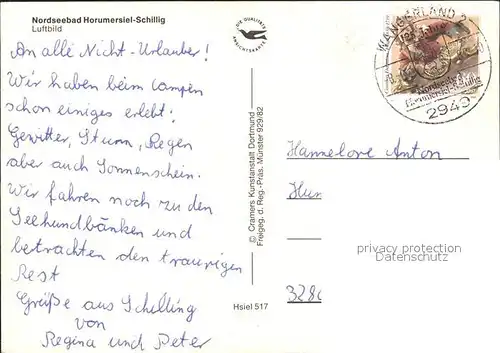 Nordseebad Horumersiel-Schillig
Luftbild
An alle Nicht-Urlauber!
Wir haben beim campen
schon einiges erlebt:
Gewitter, Sturm, Regen
aber auch Sonnenschein.
Wir fahren noch zu den
Seehundbänken und
betrachten den traurigen
Rest
Grüße aus Schillig
von
Regina und Peter
DIE QUALITÄTS
ANSICHTSKARTE
© Cramers Kunstanstalt Dortmund
Freigeg. d. Reg.-Präs. Münster 929/82
Hsiel 517
WANGERLAND 2
Nordseebad
Horumersiel-Schillig
2949
Hannelore Anton
privacy protection
Datenschutz